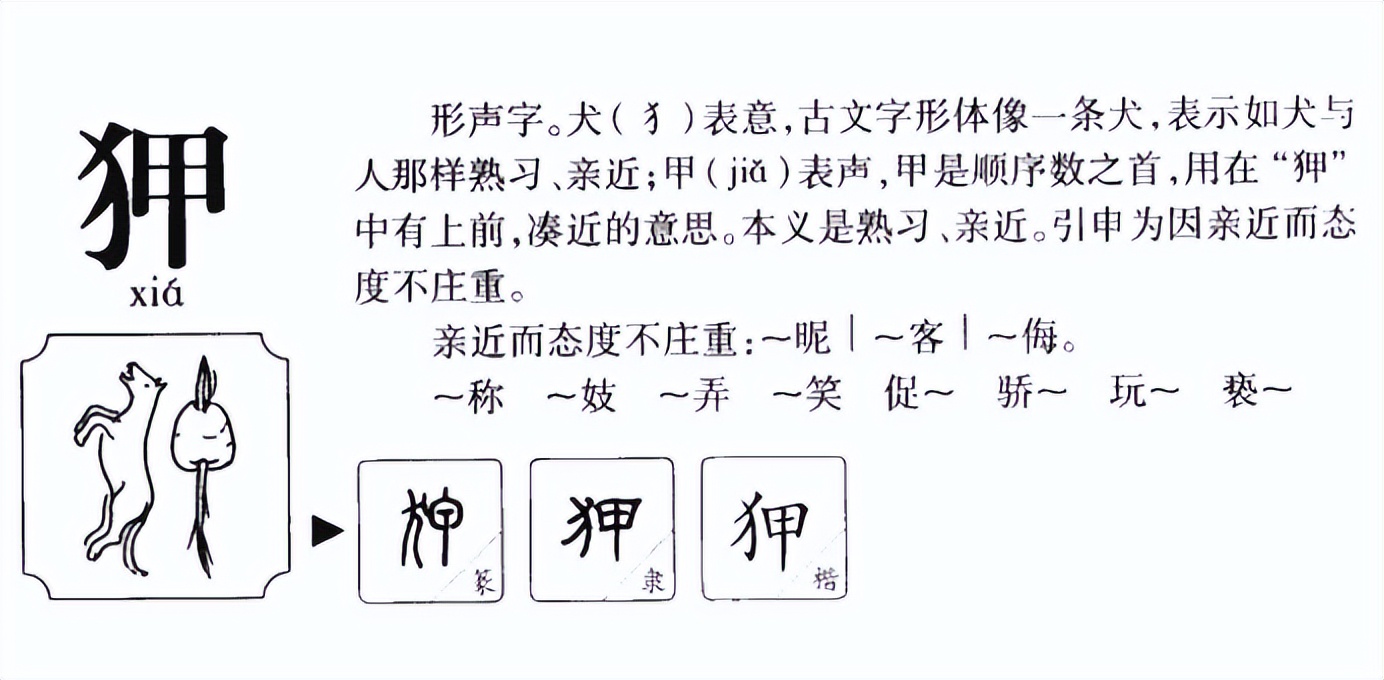 狎
xiá
形声字。犬(犭)表意,古文字形体像一条犬,表示如犬与
人那样熟习、亲近;甲(jiǎ)表声,甲是顺序数之首,用在“狎”
中有上前,凑近的意思。本义是熟习、亲近。引申为因亲近而态
度不庄重。
亲近而态度不庄重:～昵|～客|～侮。
～称 ～妓 ～弄 ～笑 促～ 骄～ 玩～ 亵～
狎 狎 狎
篆 隶 楷